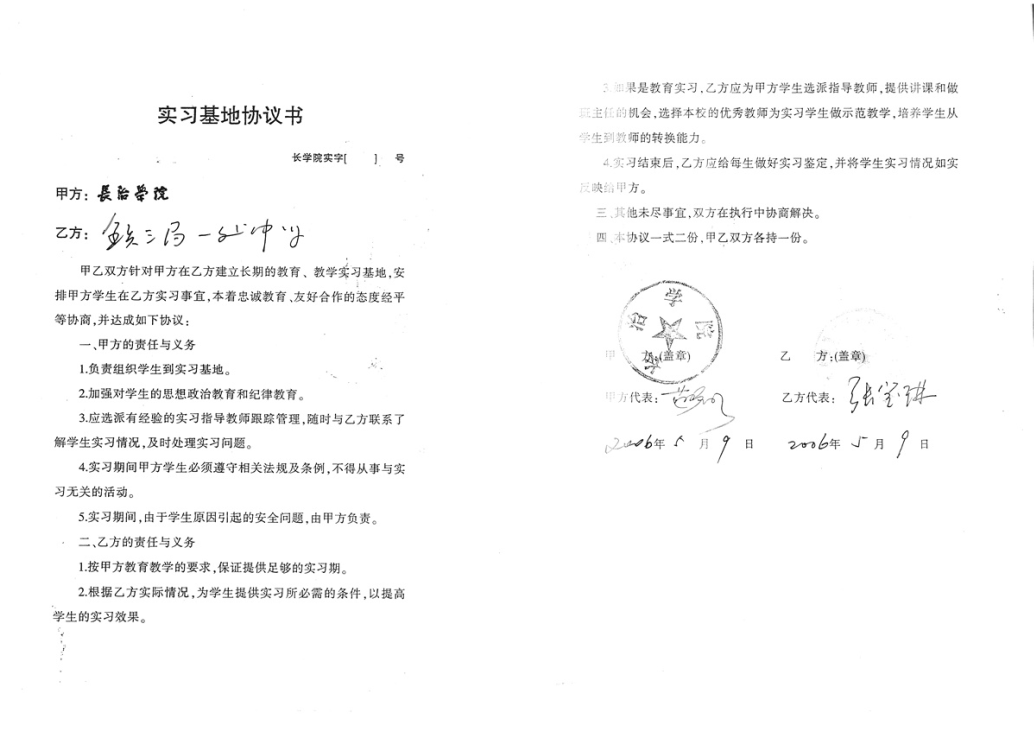 实习基地协议书
长学院实字[　　]　号
甲方：長治學院
乙方：铁三局一处中学
甲乙双方针对甲方在乙方建立长期的教育、教学实习基地,安
排甲方学生在乙方实习事宜,本着忠诚教育、友好合作的态度经平
等协商,并达成如下协议：
一、甲方的责任与义务
1.负责组织学生到实习基地。
2.加强对学生的思想政治教育和纪律教育。
3.应选派有经验的实习指导教师跟踪管理,随时与乙方联系了
解学生实习情况,及时处理实习问题。
4.实习期间甲方学生必须遵守相关法规及条例,不得从事与实
习无关的活动。
5.实习期间,由于学生原因引起的安全问题,由甲方负责。
二、乙方的责任与义务
1.按甲方教育教学的要求,保证提供足够的实习期。
2.根据乙方实际情况,为学生提供实习所必需的条件,以提高
学生的实习效果。
3.如果是教育实习,乙方应为甲方学生选派指导教师,提供讲课和做
班主任的机会,选择本校的优秀教师为实习学生做示范教学,培养学生从
学生到教师的转换能力。
4.实习结束后,乙方应给每生做好实习鉴定,并将学生实习情况如实
反映给甲方。
三、其他未尽事宜,双方在执行中协商解决。
四、本协议一式二份,甲乙双方各持一份。
甲　方:(盖章)
乙　方:(盖章)
甲方代表：
乙方代表：张宝琳
2006年5月9日
2006年5月9日